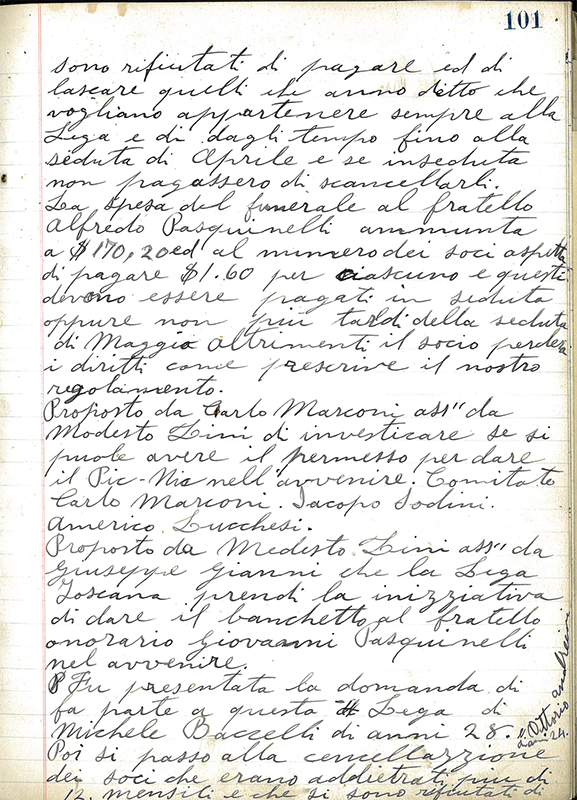 101
sono rifiutati di pagare ed di
lascare quelli che anno ditto che
vogliano appartenere sempre alla
Lega e di dagli tempo fino alla
seduta di Aprile e se inseduta
non pagassero di scancellarli.
La spesa del funerale al fratello
Alfredo Pasquinelli ammunta
a $170,20 ed al numero dei soci aspetta
di pagare $1.60 per ciascuno e questi
devono essere pagati in seduta
oppure non più taldi della seduta
di Maggio altrimenti il socio perdera
i diritti come prescrive il nostro
regolamento.
Proposto da Carlo Marconi ass" da
Modesto Lini di investicare se si
puole avere il permesso per dare
il Pic-Nic nell'avvenire. Comitato
Carlo Marconi. Jacopo Sodini.
Americo Lucchesi.
Proposto da Modesto Lini ass" da
Giuseppe Gianni che la Lega
Toscana prendi la inizziativa
di dare il banchetto al fratello
onorario Giovanni Pasquinelli
nel avvenire.
Fu presentata la domanda di
fa parte a questa Lega di
Michele Baccelli di anni 28.
Ottorio Andreini
anni 24.
Poi si passo alla cencellazzione
dei soci che erano addietrati piu di
12. mensili e che si sono rifiutati di